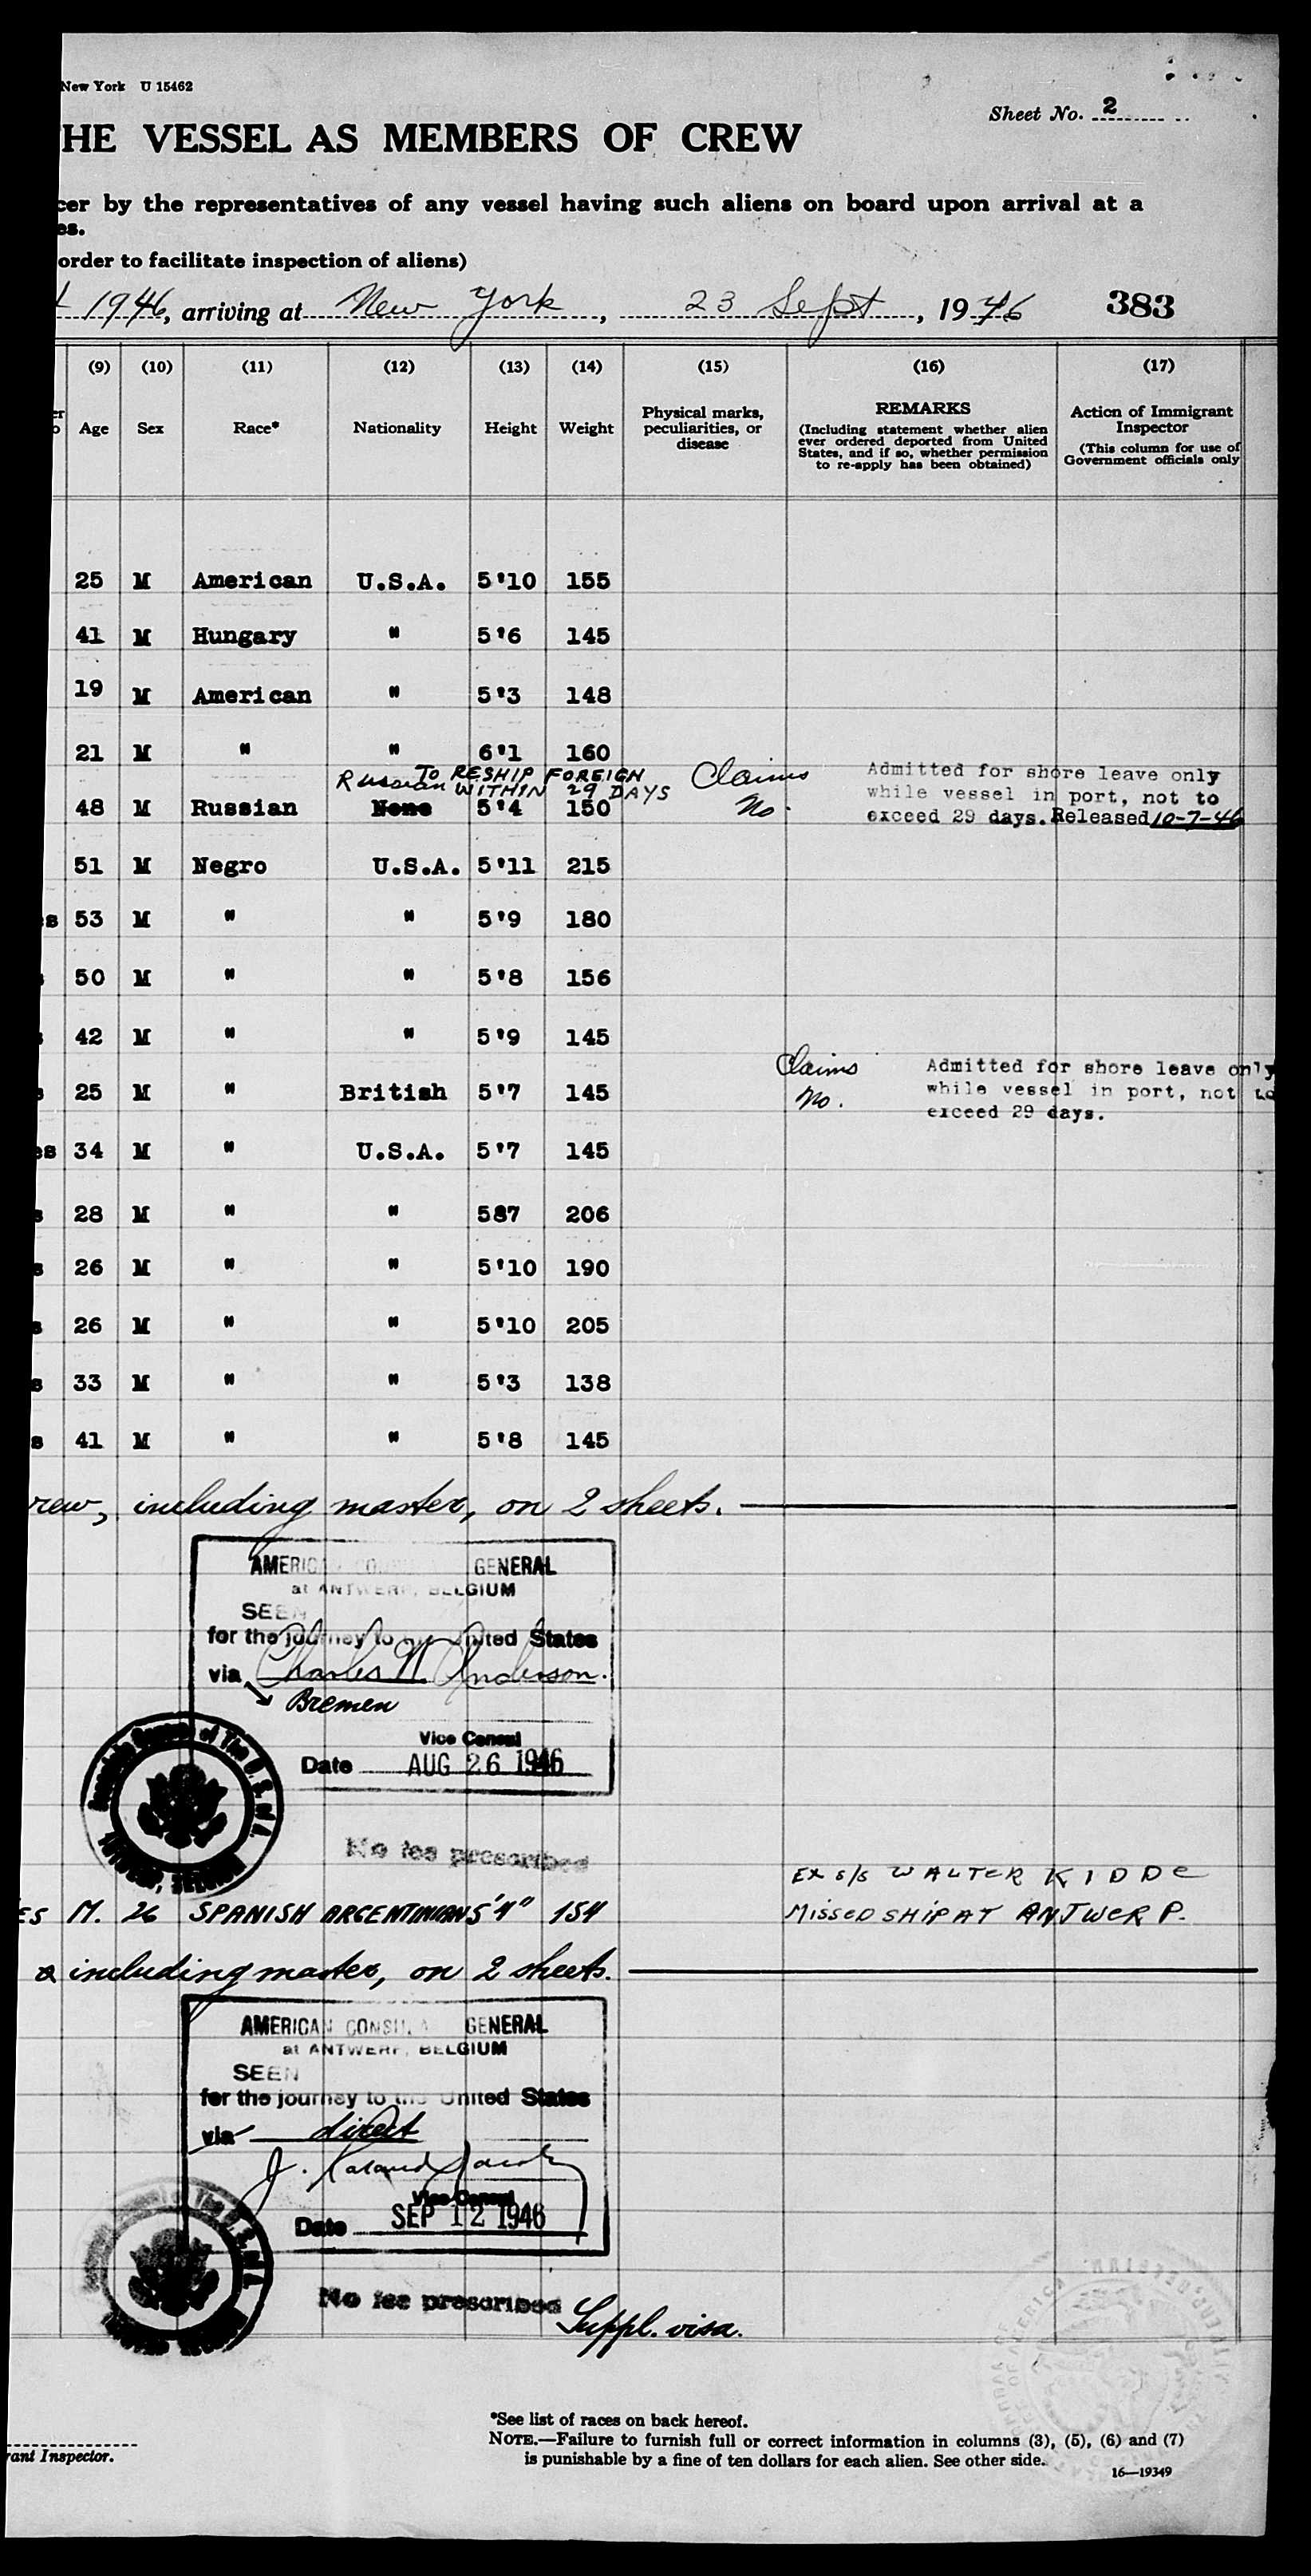 New York U 15462
Sheet No. 2
HE VESSEL AS MEMBERS OF CREW
cer by the representatives of any vessel having such aliens on board upon arrival at a
es.
order to facilitate inspection of aliens)
1946, arriving at New York, 23 Sept, 1946 383
(9) (10) (11) (12) (13) (14) (15) (16) (17)
Age Sex Race* Nationality Height Weight
Physical marks, peculiarities, or disease
REMARKS
(Including statement whether alien
ever ordered deported from United
States, and if so, whether permission
to re-apply has been obtained)
Action of Immigrant
Inspector
(This column for use of
Government officials only
25 M American U.S.A. 5'10 155
41 M Hungary " 5'6 145
19 M American " 5'3 148
21 M " " 6'1 160
TO RESHIP FOREIGN
Russian WITHIN 29 DAYS
48 M Russian None 5'4 150 Claims No.
Admitted for shore leave only
while vessel in port, not to
exceed 29 days. Released 10-7-46
51 M Negro U.S.A. 5'11 215
s 53 M " " 5'9 180
50 M " " 5'8 156
s 42 M " " 5'9 145
s 25 M " British 5'7 145 Claims No.
Admitted for shore leave only
while vessel in port, not to
exceed 29 days.
es 34 M " U.S.A. 5'7 145
s 28 M " " 587 206
s 26 M " " 5'10 190
s 26 M " " 5'10 205
s 33 M " " 5'3 138
s 41 M " " 5'8 145
rew, including master, on 2 sheets.
AMERICAN CONSU GENERAL
at ANTWERP, BELGIUM
SEEN
for the journey to the United States
via Charles W. Anderson.
Bremen
Vice Consul
Date AUG 26 1946
No fee prescribed
Ex s/s WALTER KIDDE
ES M. 26 SPANISH ARGENTINIAN 5'4" 154 MISSED SHIP AT ANTWERP.
including master, on 2 sheets.
AMERICAN CONSUL GENERAL
at ANTWERP, BELGIUM
SEEN
for the journey to the United States
via direct
Vice Consul
Date SEP 12 1946
No fee prescribed
Suppl. visa.
*See list of races on back hereof.
NOTE.—Failure to furnish full or correct information in columns (3), (5), (6) and (7)
is punishable by a fine of ten dollars for each alien. See other side.
rant Inspector.
16—19349